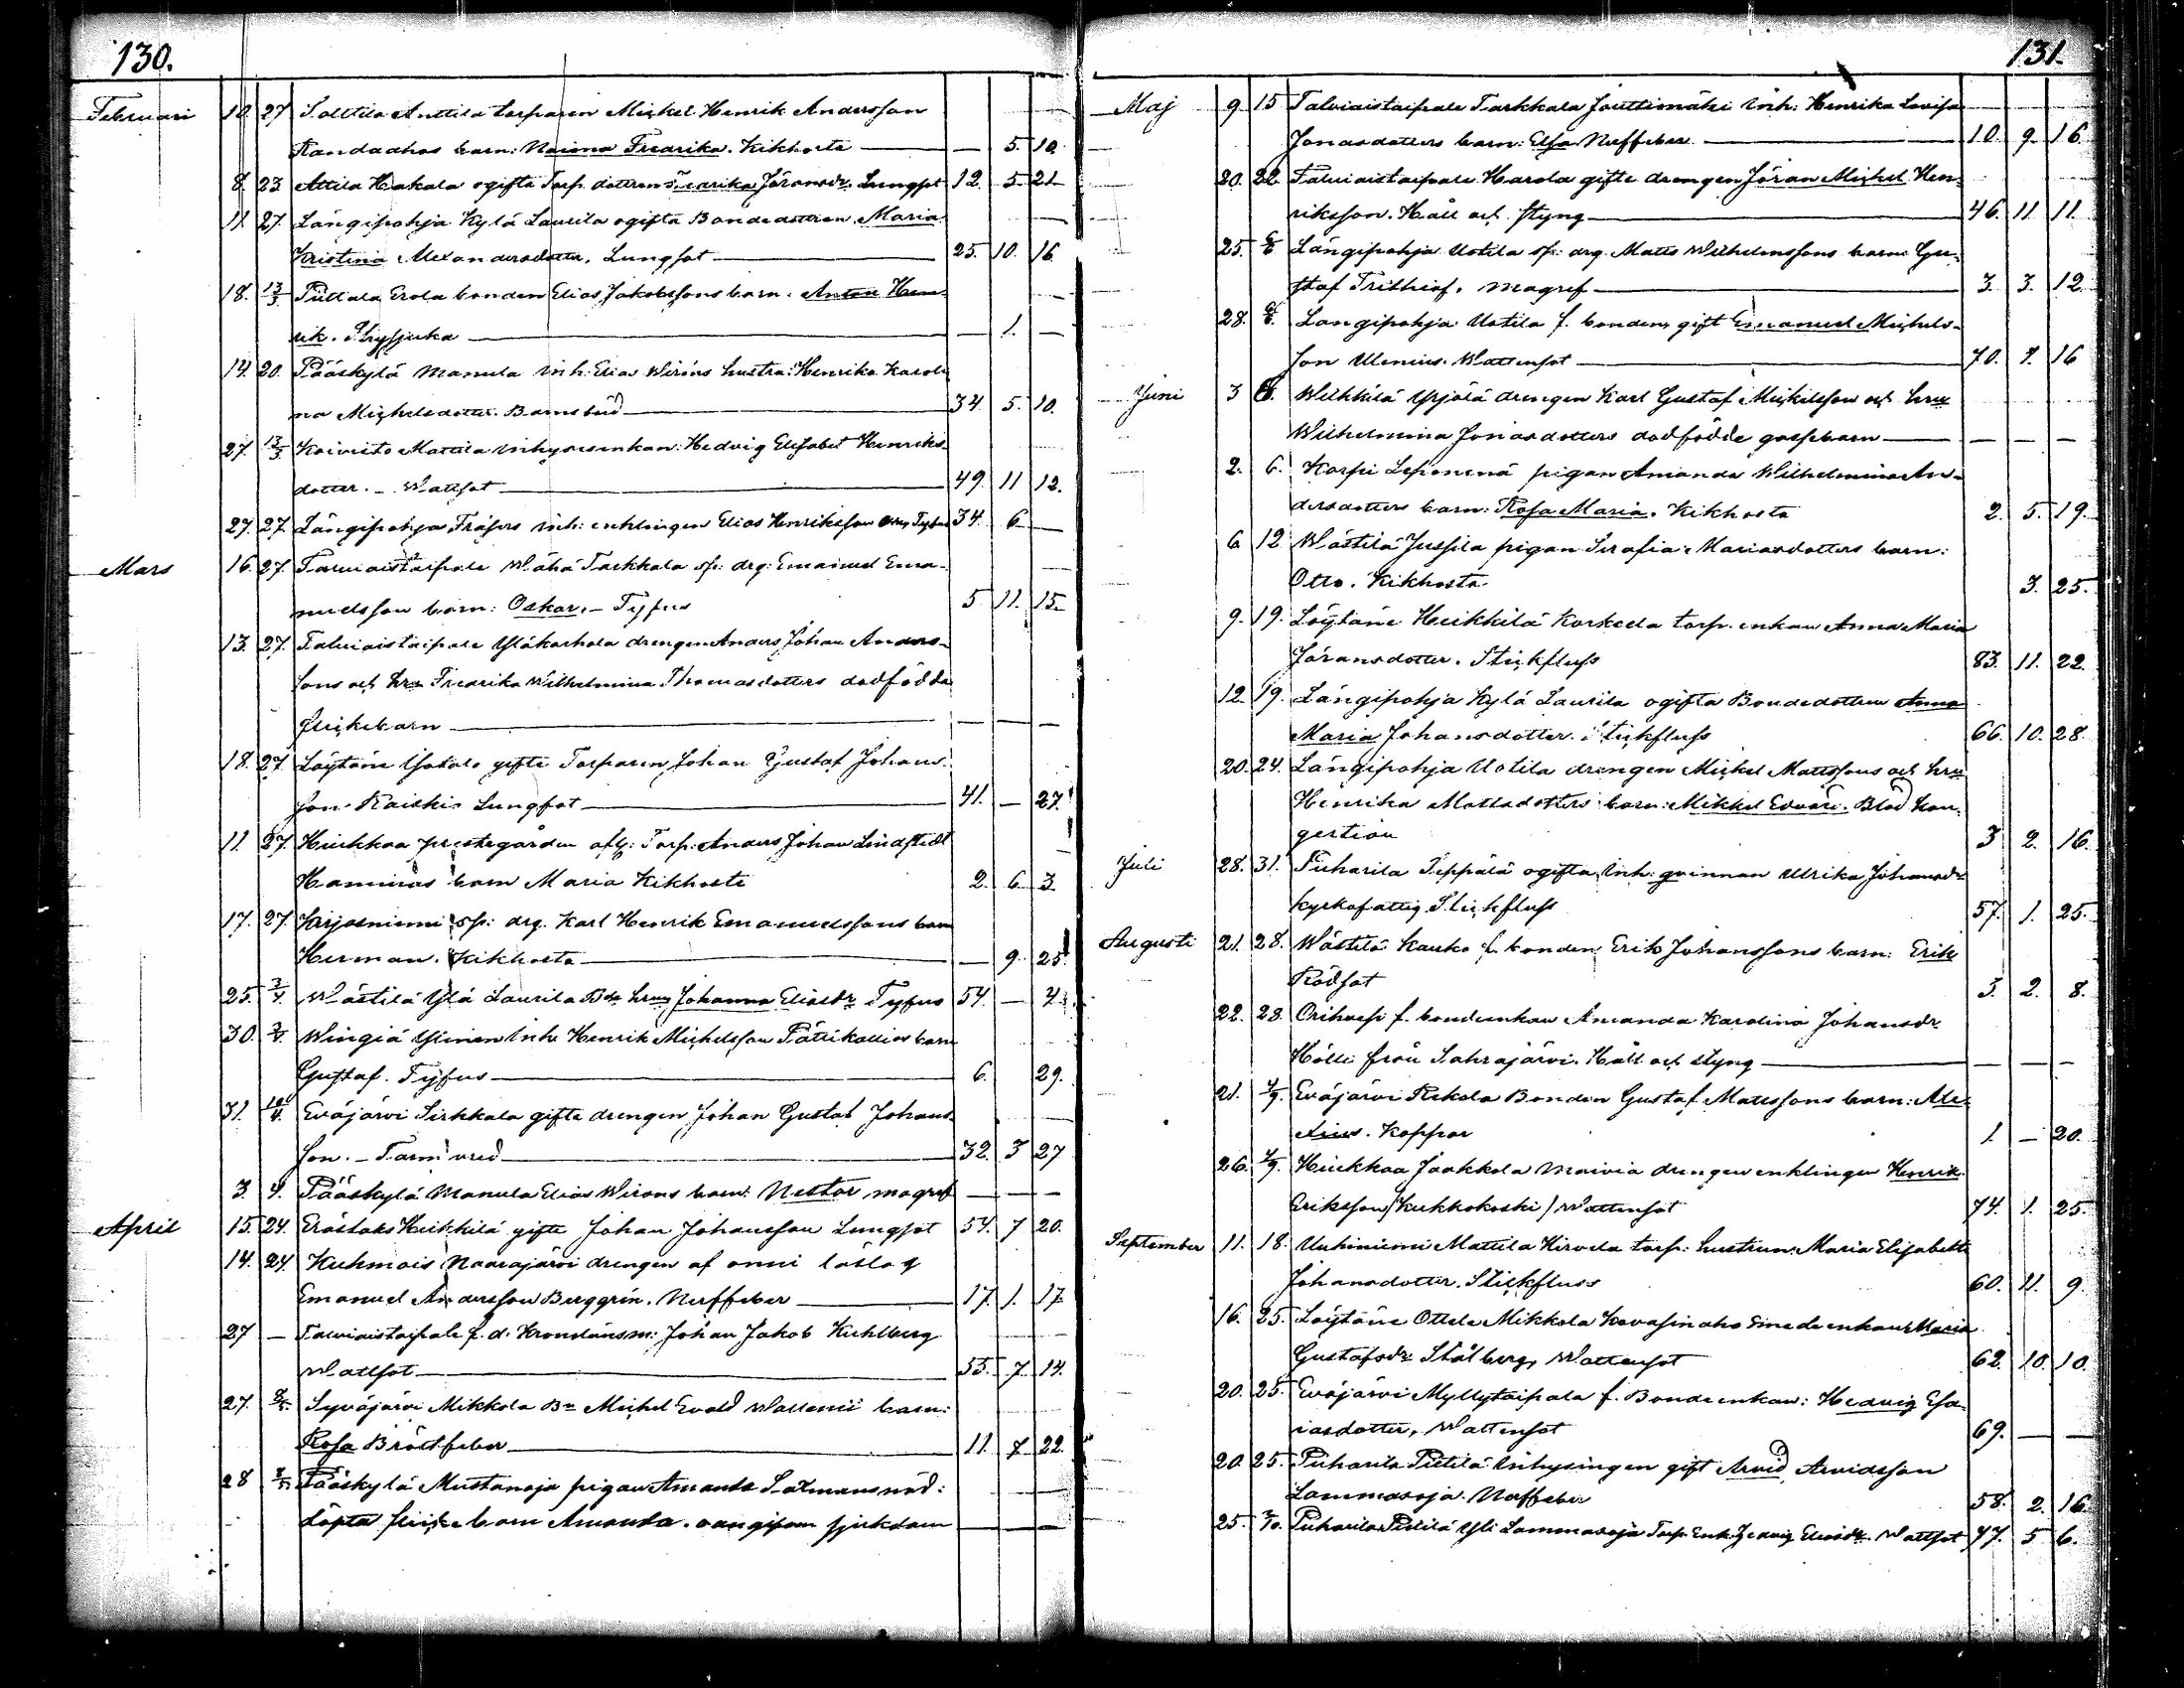 130.
Februari 10. 27 Solttila Anttila torparen Mickel Henrik Andersson
Randaahos barn: Naima Fredrika. Kikhosta — 5. 10.
8. 23 Attila Hakala ogifta Torp. dottren Fredrika Göransdr. Lungsot 12. 5. 21.
11. 27. Längipohja Kylä Laurila ogifta Bondedottren Maria
Kristina Alexandersdotter. Lungsot 25. 10. 16
18. 13/3 Puttala Erola bonden Elias Jakobssons barn. Anton Hen-
rik. — 1. —
14. 20. Pääskylä Manula inh. Elias Wiréns hustru: Henrika Karoli
na Michelsdotter. Barnsbörd 34. 5. 10.
27. 13/3 Koivisto Mattila inhysesenkan: Hedvig Elisabet Henriks-
dotter. - Wattsot 49. 11 12.
27. 27. Längipohja inh: enklingen Elias Henriksson 34. 6 —
Mars 16. 27. Talviaistaipale Wähä Tarkkala sp: drg: Emanuel Ema-
nuelsson barn: Oskar. - Tyfus 5 11. 15.
13. 27. Talviaistaipale drengen Anders Johan Anders-
sons och hru Fredrika Wilhelmina Thomasdotters dödfödda
flickebarn — — —
18. 27. Löytäne Yotalo gifte Torparen Johan Gustaf Johans-
son Raiski. Lungsot 41. — 27.
11. 27. Hiukkaa prestegården afg: Torp: Anders Johan Lindstedt
Hamiras barn Maria Kikhosta 2. 6. 3.
17. 27. Kirjasniemi sp: drg. Karl Henrik Emanuelssons barn
Herman. Kikhosta — 9. 25.
25. 3/4. Wästilä Ylä Laurila Bde hru Johanna Eliasdr Tyfus 54. — 4.
30. 3/4. Wingiä Ylinen Inh. Henrik Michelsson Pätikallios barn
Gustaf. Tyfus 6. 29.
31. 10/4. Eväjärvi Sirkkala gifte drengen Johan Gustaf Johans-
son. - Tarmvred 32. 3 27
3. 4. Pääskylä Manula Elias Wirens barn: Nestor magref — — —
April 15. 24. Eräslaks Heikkilä gifte Johan Johansson Lungsot 54. 7 20.
14. 24. Kuhmois Naarajärvi drengen af onni löslag
Emanuel Andersson Berggrén. Nerffeber 17. 1. 17.
27 — Talviaistaipale f. d. Kronolänsm: Johan Jakob Kuhlberg
Wattsot 55. 7. 14.
27. 8/5. Syväjärvi Mikkola Bn Michel Evald Wallenii barn:
Rosa Bröstfeber 11. 7 22.
28 8/5. Pääskylä Mustanoja pigan Amanda Salmans nöd:
döpta flickebarn Amanda. oangifven sjukdom — — —
131.
Maj 9. 15 Talviaistaipale Tarkkala Jouttimäki inh: Henrika Lovisa
Jonasdotters barn: Elsa Nerffeber 10. 9. 16.
20. 22. Talviaistaipale Harola gifte drengen Jöran Michel Hen-
riksson. Håll och styng 46. 11. 11.
25. 6/6 Längipohja Uotila sp: drg. Matts Wilhelmssons barn: Gu-
staf Frithiof. magref 3. 3. 12.
28. 6/6. Längipohja Uotila f. bonden gift Emanuel Michels-
son Ulenius. Wattensot 70. 7. 16
Juni 3 6. Wilkkilä Yrjölä drengen Karl Gustaf Mickelsson och hru
Wilhelmina Jonasdotters dödfödde gossebarn — — —
2. 6. Korpi Leponenä pigan Amanda Wilhelmina An-
dersdotters barn: Rosa Maria. Kikhosta 2. 5. 19.
6 12 Wästilä Jussila pigan Serafia Mariasdotters barn:
Otto. Kikhosta 3. 25.
9. 19. Löytäne Heikkilä Korkeela torp. enkan Anna Maria
Jöransdotter. Stickfluss 83. 11. 22.
12. 19. Längipohja Kylä Laurila ogifta Bondedottren Anna
Maria Johansdotter. Stickfluss 66. 10. 28.
20. 24. Längipohja Uotila drengen Mickel Mattssons och hru
Henrika Mattsdotters barn: Mikkel Edvard. Blod kon-
gestion 3 2. 16.
Juli 28. 31. Puharila Seppälä ogifta inh: qvinnan Ulrika Johansdr
kyrkofattig. Stickfluss 57. 1. 25.
Augusti 21. 28. Wästilä Kauko f. bonden Erik Johanssons barn: Erik
Rödsot 3. 2. 8.
22. 28. Orihvesi f. bondeenkan Amanda Karolina Johansdr
Hölli från Sahrajärvi. Håll och styng — — —
21. 4/9. Eväjärvi Rekola Bonden Gustaf Mattssons barn: Ale-
xius. Koppor 1. — 20.
26. 4/9. Hiukkaa Jaakkola drengen enklingen Henrik
Eriksson /Kukkokoski/ Wattensot 74. 1. 25.
September 11. 18. Unhiniemi Mattila Hirvela torp: hustrun: Maria Elisabeth
Johansdotter. Stickfluss 60. 11. 9.
16. 25. Löytäne Ottela Mikkola enkan Maria
Gustafsdr Stålberg, Wattensot 62. 10. 10.
20. 25. Eväjärvi Myllytaipale f. Bondeenkan: Hedvig Esa-
iasdotter, Wattensot 69. — —
20. 25. Puharila Pietilä inhysingen gift Arvid Arvidsson
Lammasoja. Nerffeber 58. 2. 16.
25. 2/10. Puharila Pietilä Yli Lammasoja Torp. Enk. Hedvig Eliasdr. Wattsot 77. 5 6.